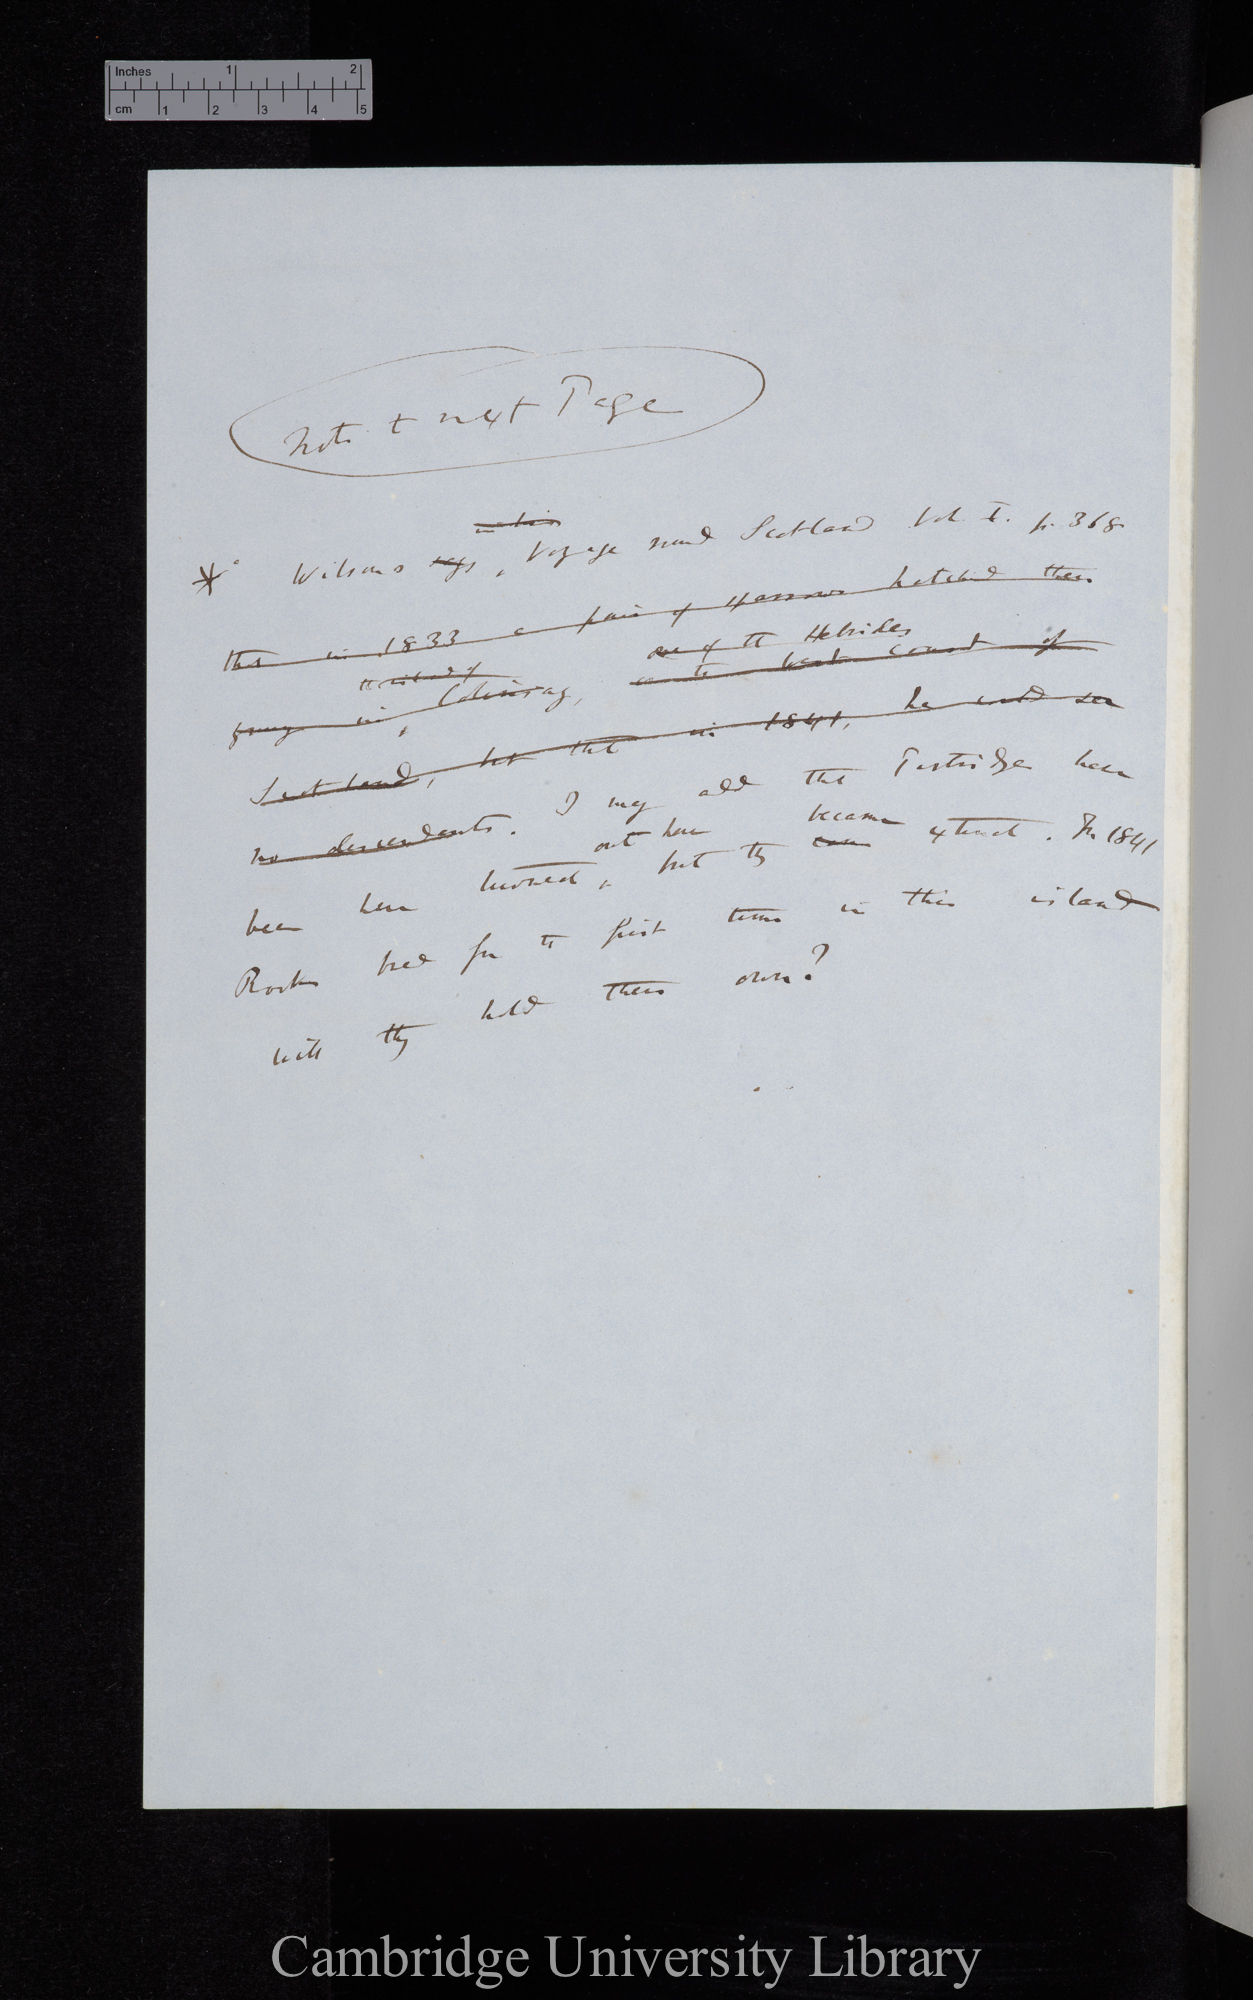 Inches 1 2
cm 1 2 3 4 5
Note to next Page
in his
* Wilson's says, Voyage round Scotland Vol. I. p. 368
that in 1833 a pair of sparrows hatched their
the island of one of the Hebrides
young in, Colonsay, on the west coast of
Scotland, but that in 1841, he could see
no descendants. I may add that Partridges have
out here became
been here turned, but they extinct. In 1841
Rooks bred for the first time in this island
will they hold their own?
Cambridge University Library